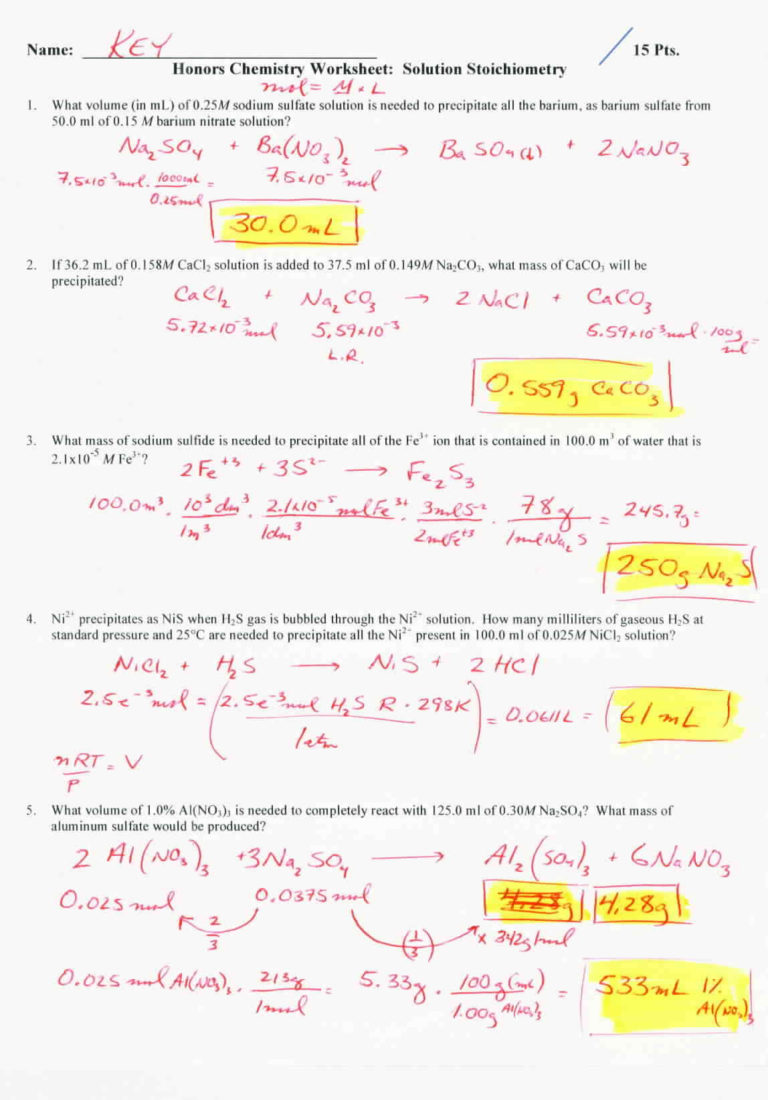 Name: KEY 15 Pts.
Honors Chemistry Worksheet: Solution Stoichiometry
mol = M × L
1. What volume (in mL) of 0.25M sodium sulfate solution is needed to precipitate all the barium, as barium sulfate from
50.0 ml of 0.15 M barium nitrate solution?
Na₂SO₄ + Ba(NO₃)₂ → BaSO₄(s) + 2NaNO₃
7.5×10⁻³ mol · 1000ml / 0.25mol = 7.5×10⁻³ mol
30.0 mL
2. If 36.2 mL of 0.158M CaCl₂ solution is added to 37.5 ml of 0.149M Na₂CO₃, what mass of CaCO₃ will be
precipitated?
CaCl₂ + Na₂CO₃ → 2 NaCl + CaCO₃
5.72×10⁻³ mol 5.59×10⁻³ 5.59×10⁻³ mol · 100g / mol =
L.R.
0.559g CaCO₃
3. What mass of sodium sulfide is needed to precipitate all of the Fe³⁺ ion that is contained in 100.0 m³ of water that is
2.1x10⁻⁵ M Fe³⁺?
2Fe⁺³ + 3S²⁻ → Fe₂S₃
100.0m³ · 10³ dm³ / 1m³ · 2.1×10⁻⁵ mol Fe³⁺ / 1dm³ · 3mol S⁻² / 2mol Fe⁺³ · 78g / 1mol Na₂S = 245.7g =
250g Na₂S
4. Ni²⁺ precipitates as NiS when H₂S gas is bubbled through the Ni²⁺ solution. How many milliliters of gaseous H₂S at
standard pressure and 25°C are needed to precipitate all the Ni²⁺ present in 100.0 ml of 0.025M NiCl₂ solution?
NiCl₂ + H₂S → NiS + 2 HCl
2.5e⁻³ mol = (2.5e⁻³ mol H₂S R · 298K / 1atm) = 0.0611L = 61 mL
nRT / P = V
5. What volume of 1.0% Al(NO₃)₃ is needed to completely react with 125.0 ml of 0.30M Na₂SO₄? What mass of
aluminum sulfate would be produced?
2 Al(NO₃)₃ + 3Na₂SO₄ → Al₂(SO₄)₃ + 6NaNO₃
0.025 mol 0.0375 mol 4.28g 4.28g
2/3 (1/3) × 342g/mol
0.025 mol Al(NO₃)₃ · 213g / 1mol = 5.33g · 100g(mL) / 1.00g Al(NO₃)₃ = 533mL 1% Al(NO₃)₃